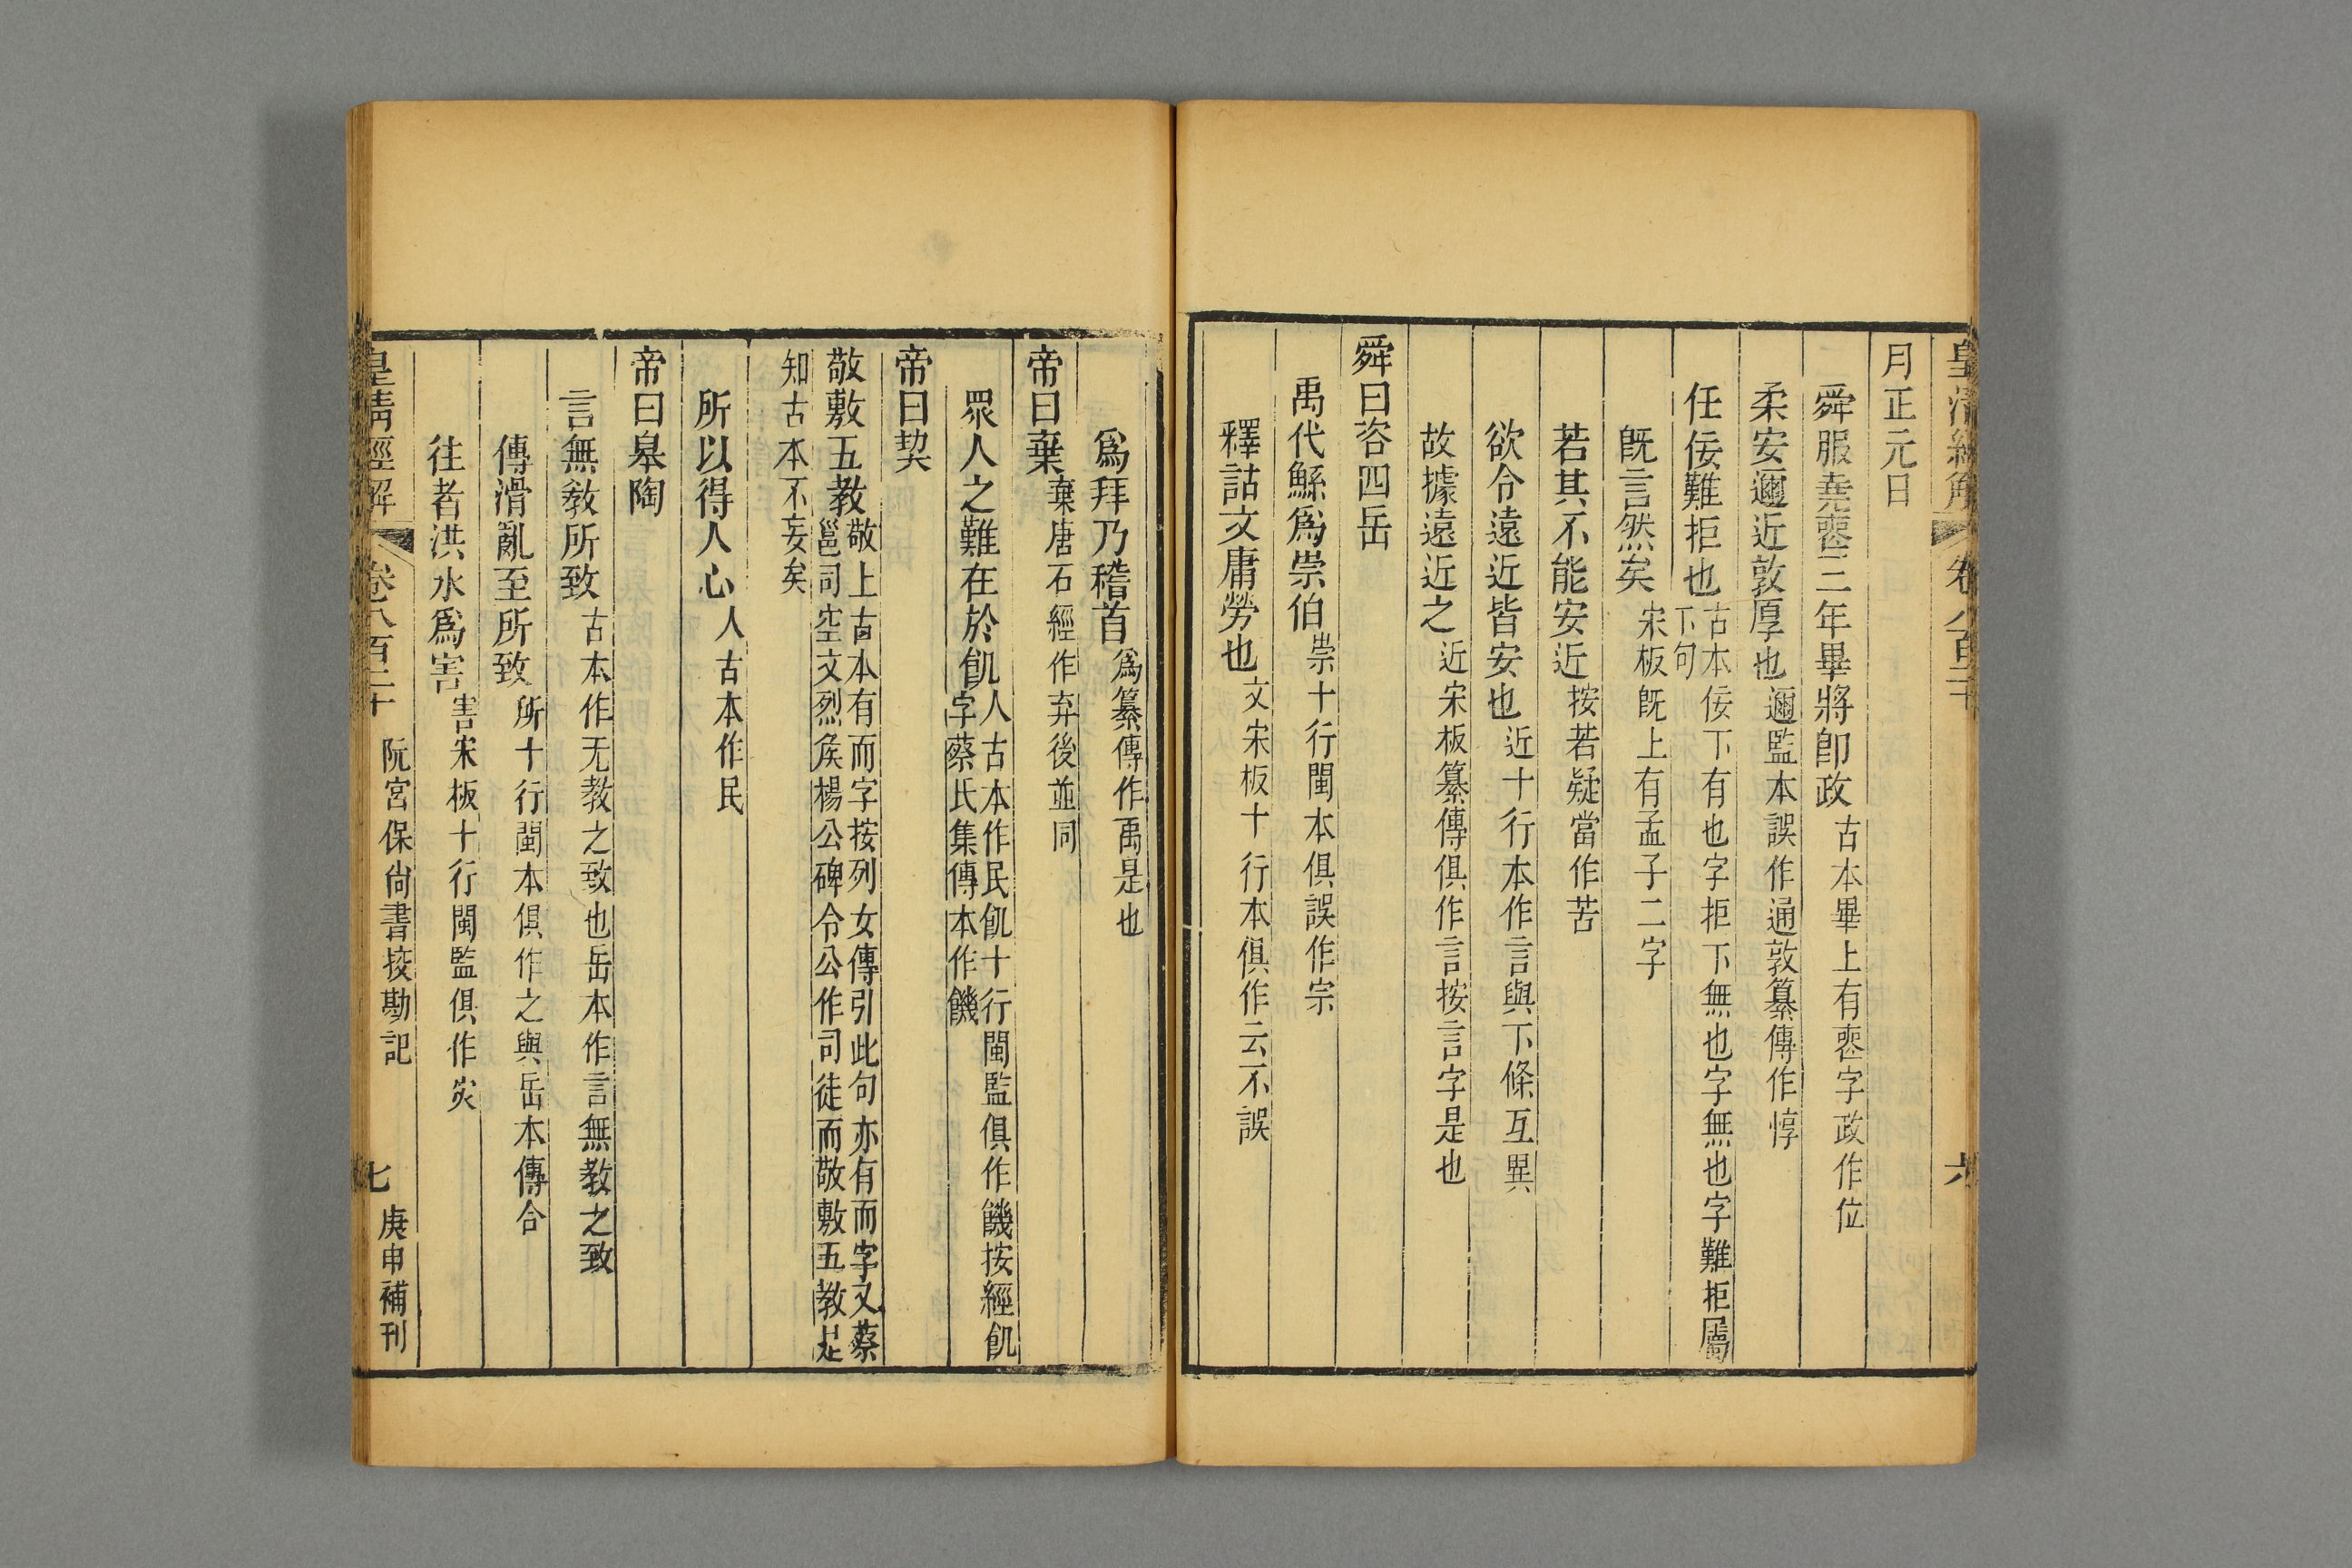 皇清經解 卷八百二十 六
月正元日
舜服堯喪三年畢將卽政 古本畢上有喪字政作位
柔安邇近敦厚也 邇監本誤作通敦纂傳作惇
任佞難拒也 古本佞下有也字拒下無也字無也字難拒屬下句
旣言然矣 宋板旣上有孟子二字
若其不能安近 按若疑當作苦
欲令遠近皆安也 近十行本作言與下條互異
故據遠近之 近宋板纂傳俱作言按言字是也
舜曰咨四岳
禹代鯀爲崇伯 崇十行閩本俱誤作宗
釋詁文庸勞也 文宋板十行本俱作云不誤
爲拜乃稽首 爲纂傳作禹是也
帝曰棄 棄唐石經作弃後並同
眾人之難在於飢 人古本作民飢十行閩監俱作饑按經飢字蔡氏集傳本作饑
帝曰契
敬敷五教 敬上古本有而字按列女傳引此句亦有而字又蔡邕司空文烈矦楊公碑令公作司徒而敬敷五教足
知古本不妄矣
所以得人心 人古本作民
帝曰皋陶
言無敎所致 古本作无教之致也岳本作言無教之致
傳滑亂至所致 所十行閩本俱作之與岳本傳合
往者洪水爲害 害宋板十行閩監俱作災
皇清經解 卷八百二十 阮宮保尙書挍勘記 七 庚申補刊